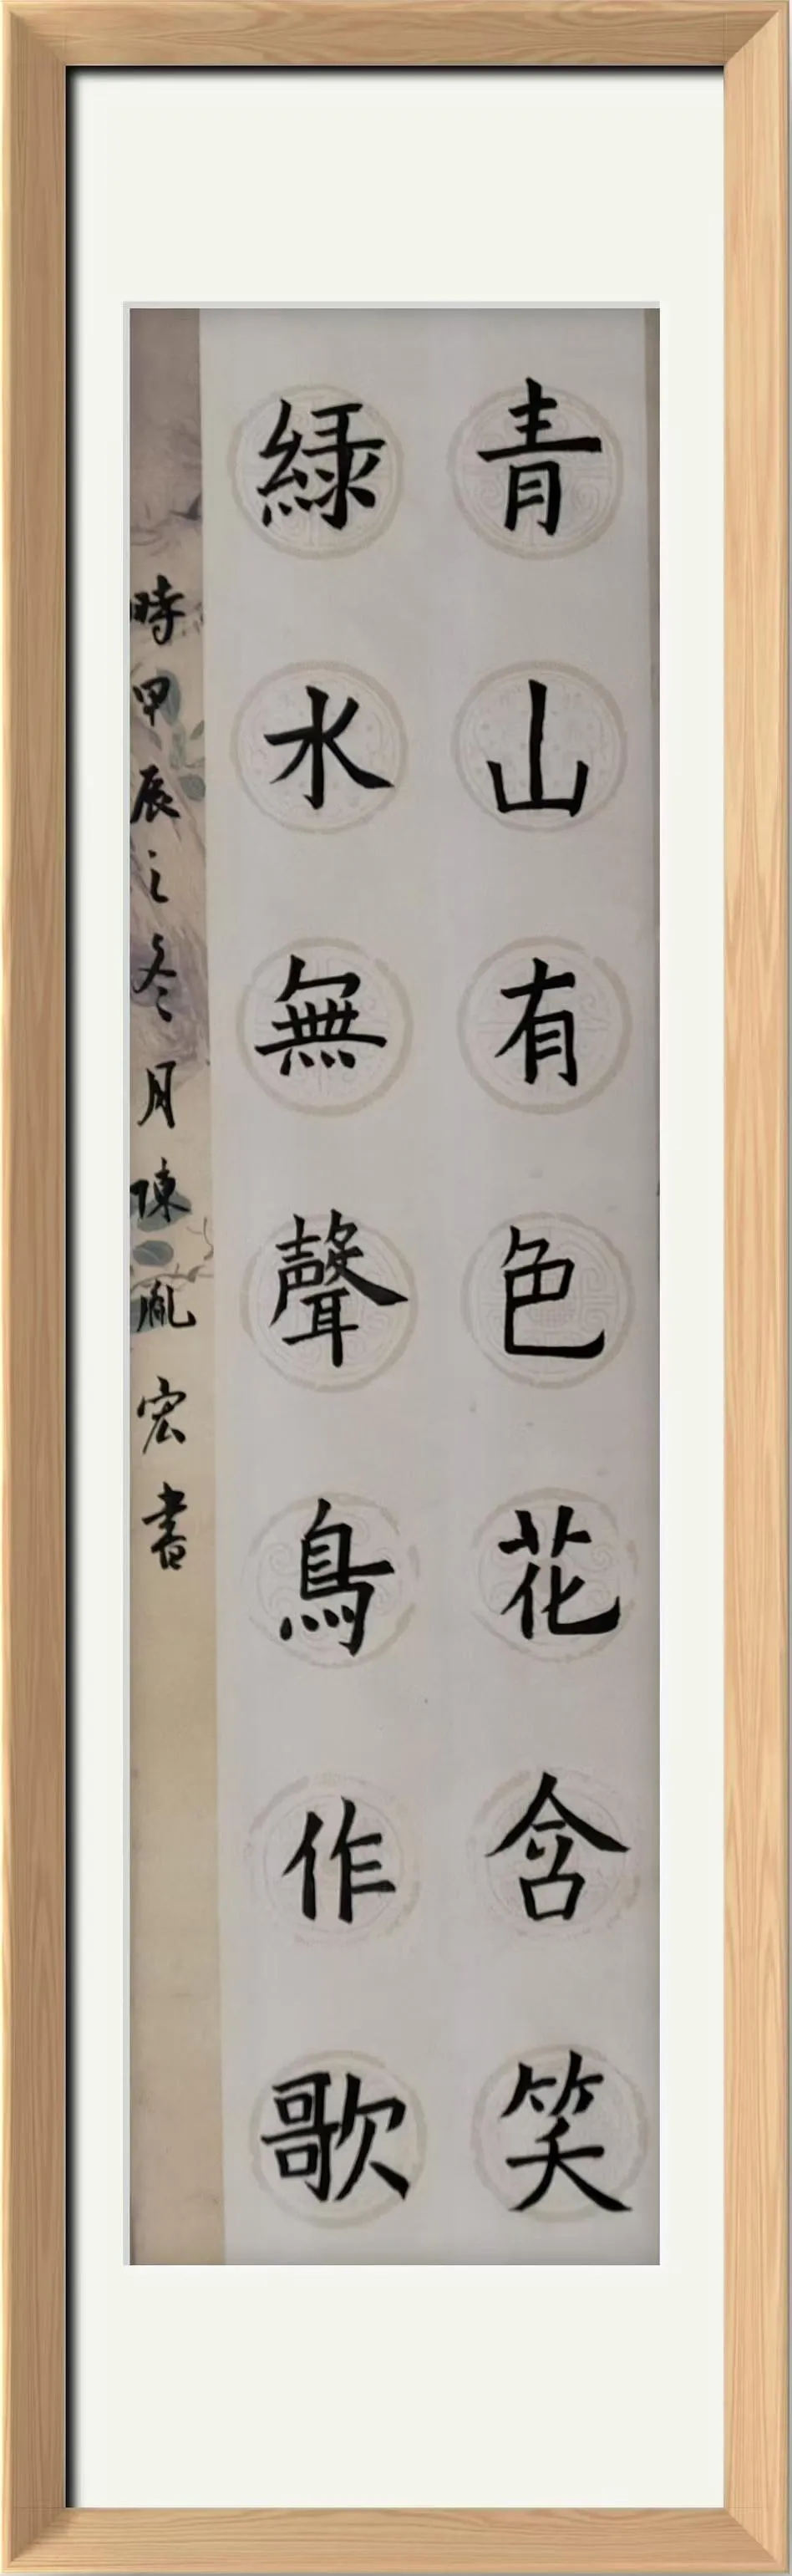 青山有色花含笑
綠水無聲鳥作歌
時甲辰之冬月陳胤宏書